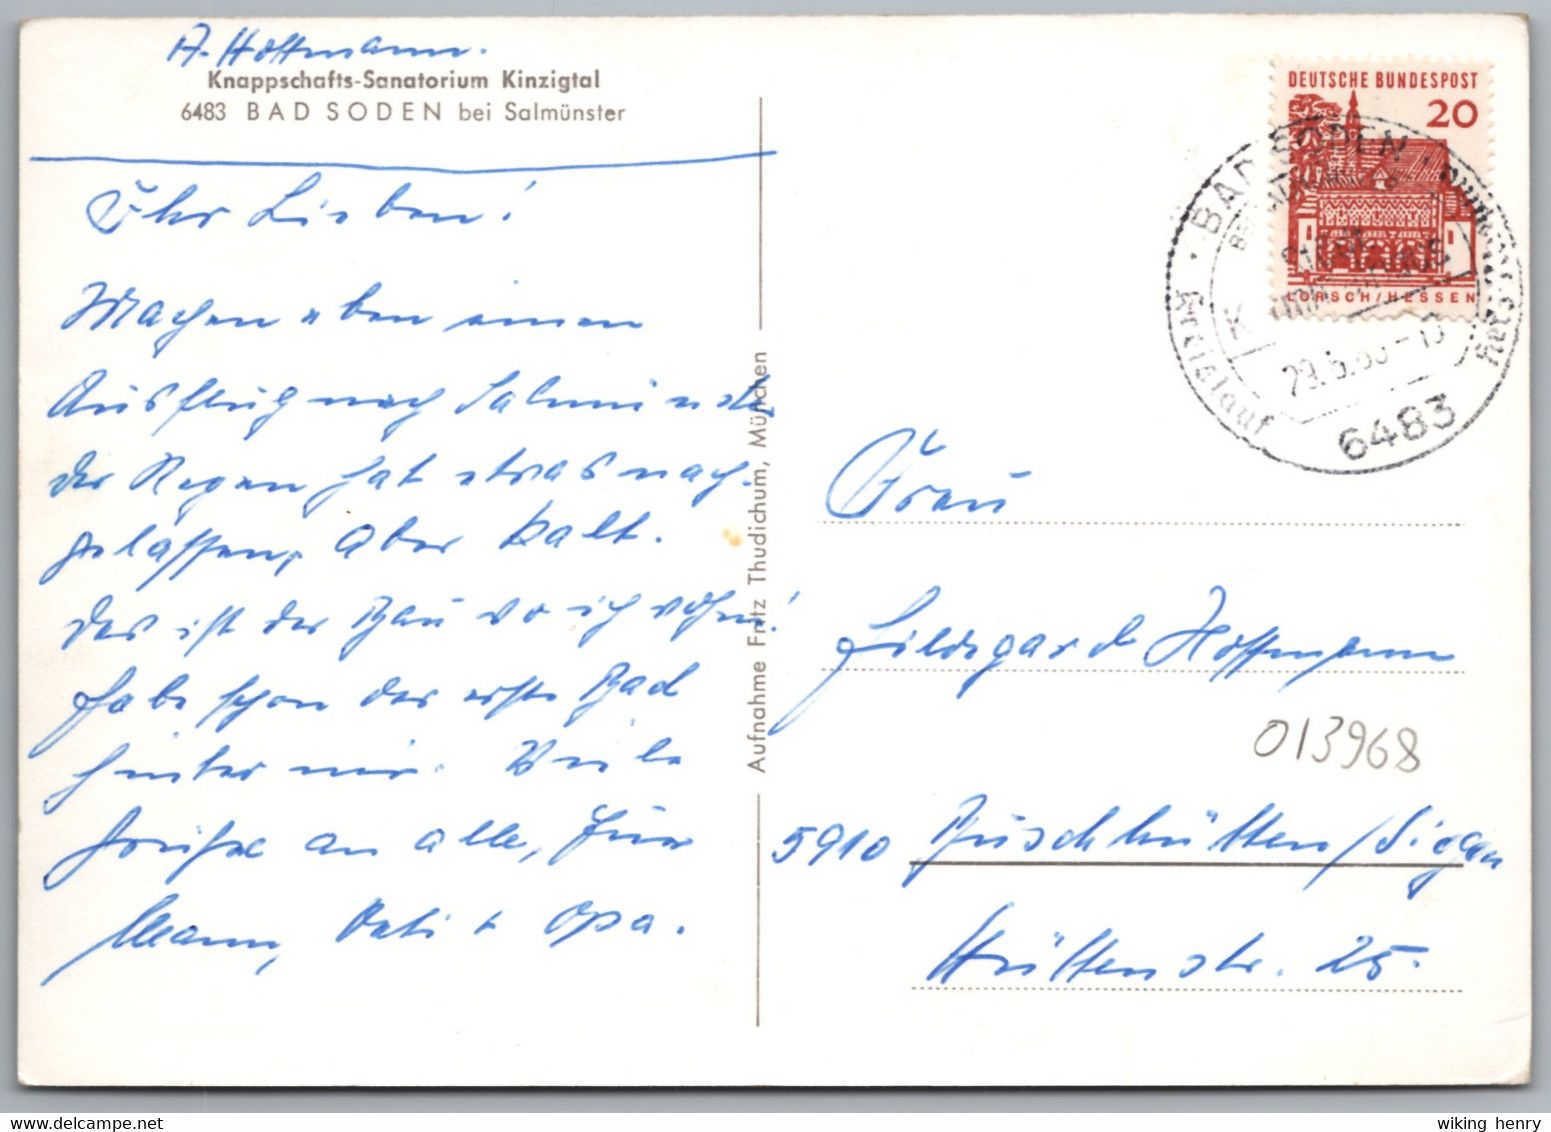 A. Hoffmann.
Knappschafts-Sanatorium Kinzigtal
6483 BAD SODEN bei Salmünster
Ihr Lieben!
Machen eben einen
Ausflug nach Salmünster
der Regen hat etwas nach-
gelassen, aber kalt.
Das ist der Bau wo ich wohne!
Habe schon das erste Bad
hinter mir. Viele
Grüße an alle, Euer
Mann, Vati + Opa.
Aufnahme Fritz Thudichum, München
DEUTSCHE BUNDESPOST
20
LORSCH/HESSEN
BAD SODEN
Kreislauf
6483
Frau
Hildegard Hoffmann
013968
5910 Buschhütten/Siegen
Hüttenstr. 25.
wiking henry